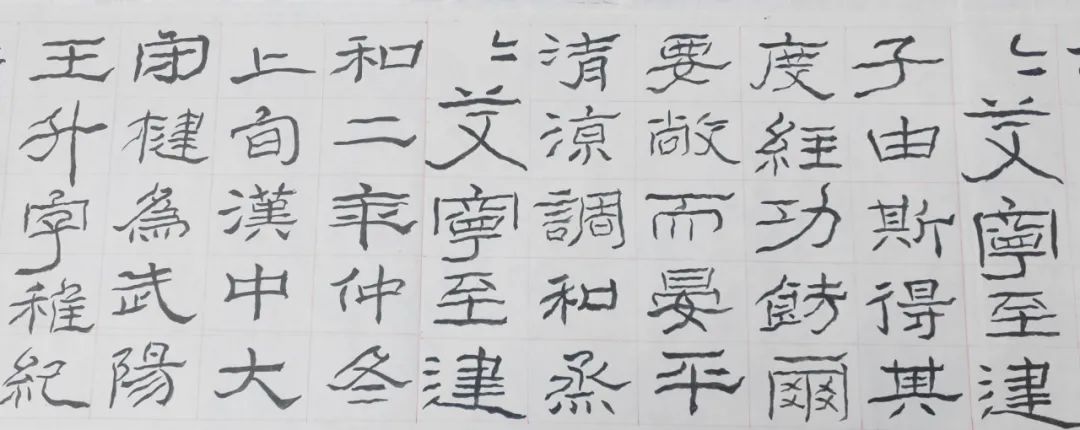 〻艾寧至建
子由斯得其
度經功飭爾
要敞而晏平
清涼調和烝
〻艾寧至建
和二年仲冬
上旬漢中大
守楗為武陽
王升字稚紀